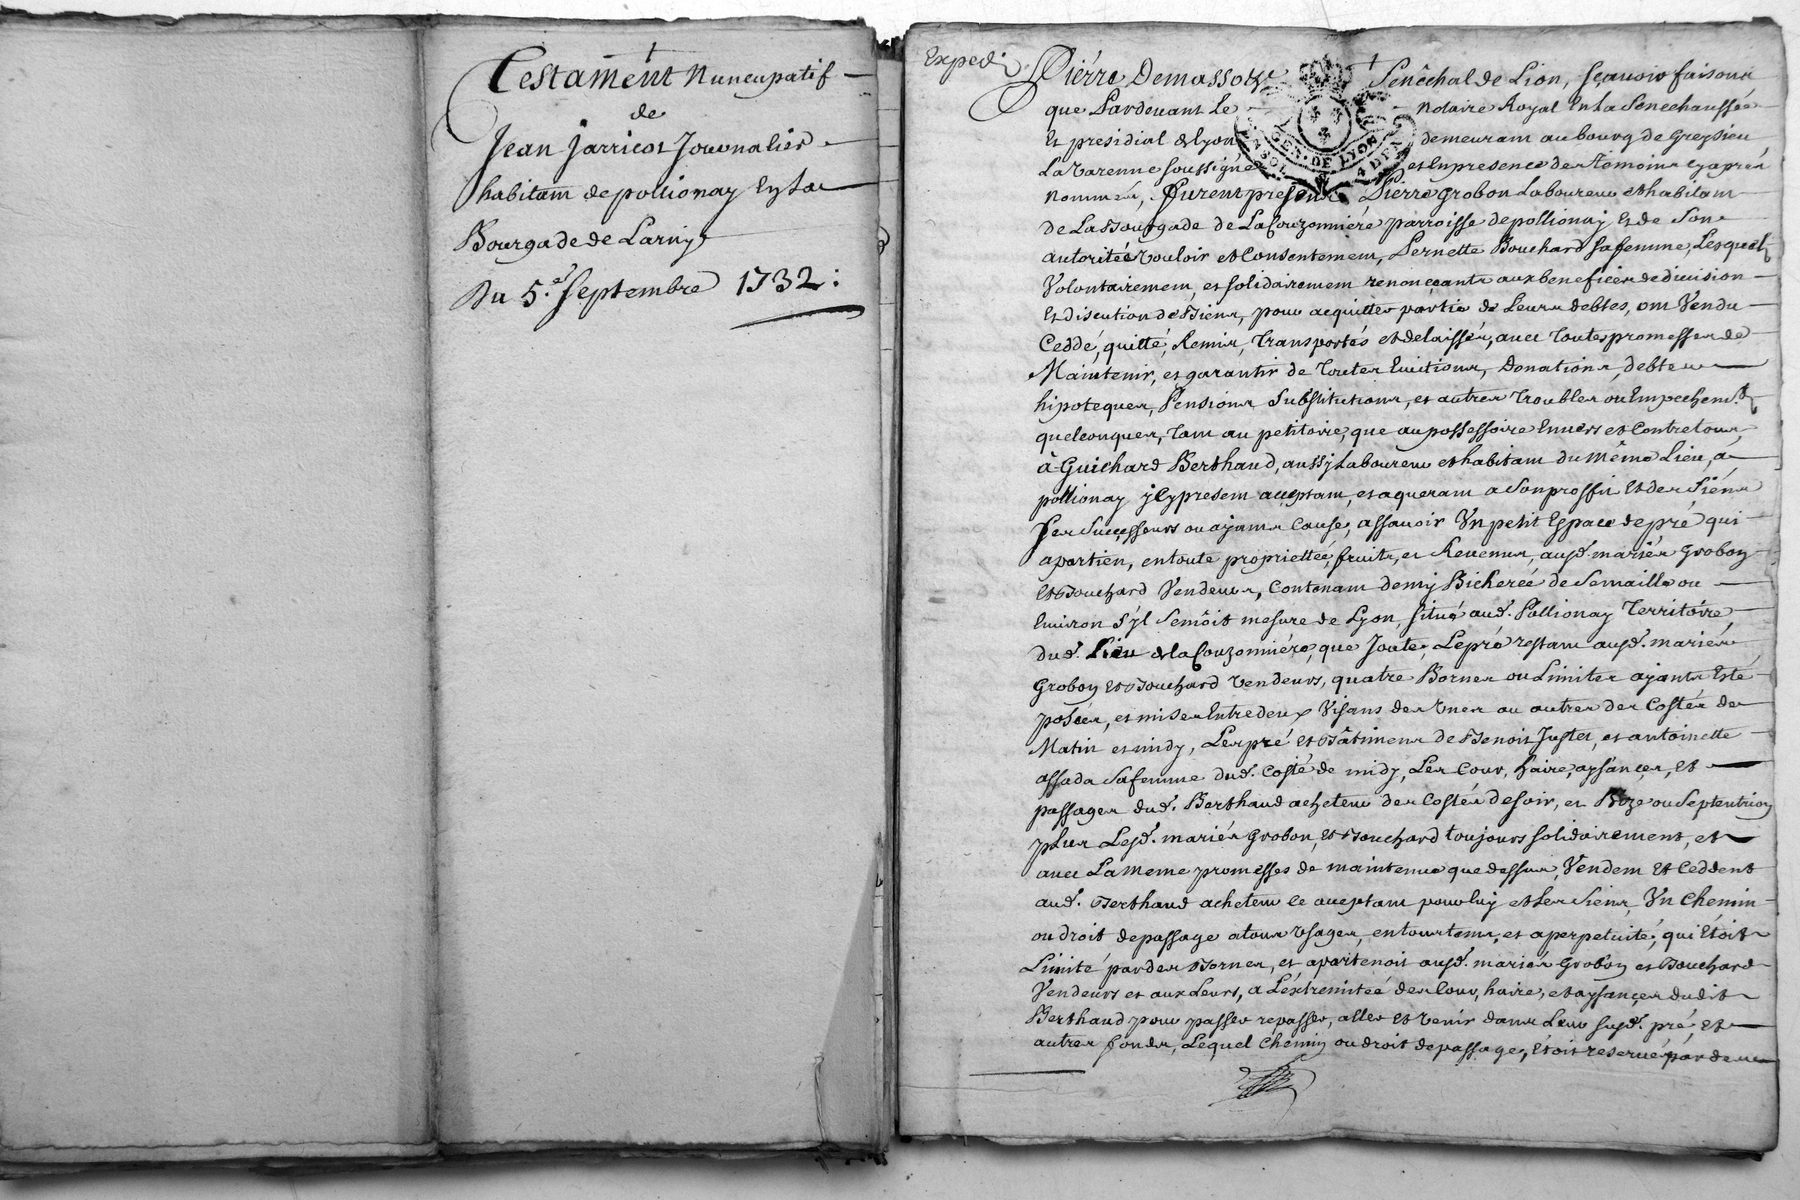 Testament Nuncupatif
de
Jean Jarricot Journalier
habitant de pollionay En La
Bourgade de Larny
Du 5.e Septembre 1732:
Expedié
Pierre Demasso Senéchal de Lion, sçavoir faisons
que Pardevant Le Notaire Royal En La Senechaussée
Et presidial de Lyon demeurant au bourg de Greysieu
La Varenne soussigné et En presence des Temoins cy apres
nommés, Furent presents Pierre Grobon Laboureur et habitant
de La Bourgade de La Couzonniere parroisse de pollionay Et de Son
autorité vouloir et Consentement, Pernette Bouchard sa femme, Lesquels
Volontairement, et solidairement renonçants aux benefices de division
Et discution de Biens, pour acquitter partie de Leurs debtes, ont Vendu
Ceddé, quitté, Remis, Transportés et delaissés, avec Toutes promesses de
Maintenir, et garantir de Toutes Evictions, Donations, debtes
hipoteques, Pensions Substitutions, et autres Troubles ou Empechem.ts
quelconques, Tant au petitoire, que au possessoire Envers et Contre tous,
à Guichard Berthaud, aussy Laboureur et habitant du même Lieu, à
pollionay jcy present acceptant, et aquerant a Son proffit Et des Siens
Ses Successeurs ou ayants Cause, assavoir Un petit Espace de pré qui
apartien, en toute proprietteé, fruits, et Revenus, ausd. mariés Grobon
Et Bouchard Vendeurs, Contenant demy Bicherée de Semaille ou
Environ s'yl Semoit mesure de Lyon, situé aud. Pollionay Territoire
dud. Lieu de La Couzonniere, que Joute, Le pré restant ausd. mariés
Grobon Et Bouchard vendeurs, quatre Bornes ou Limites ayants Eté
posées, et mises Entredeux Visans des Unes au autres des Costés de
Matin et midy, Les pré Et Bâtiments de Benoit Juttet, et antoinette
assada Safemme dud. Costé de midy, Les Cour, haire, aysances, Et
passages dud. Berthaud acheteur des Costés de soir, et Bize ou Septentrion
plus Lesd. mariés Grobon, Et Bouchard toujours solidairement, et
avec La meme promesses de maintenue que dessus, Vendent Et Ceddent
aud. Berthaud acheteur ce acceptant pour luy et Les Siens, Un Chemin
ou droit de passage a tous Usages, en tous tems, et a perpetuité, qui Etoit
Limité par des Bornes, et apartenoit ausd. mariés Grobon et Bouchard
Vendeurs et aux Leurs, a L'extremiteé des Cour, haire, et aysances dudit
Berthaud pour passer repasser, aller Et venir dans Leur susd. pré, Et
autres fonds, Lequel Chemin ou droit de passage, Etoit reservé par